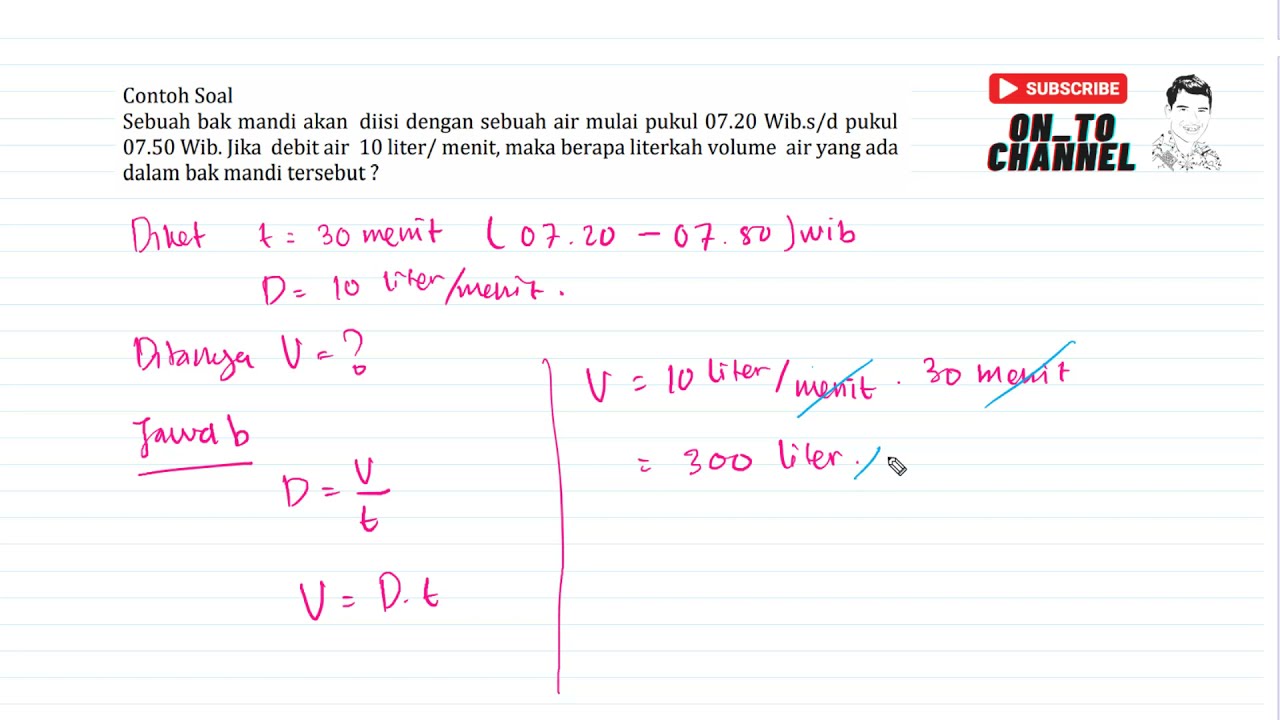 Contoh Soal
Sebuah bak mandi akan diisi dengan sebuah air mulai pukul 07.20 Wib.s/d pukul
07.50 Wib. Jika debit air 10 liter/ menit, maka berapa literkah volume air yang ada
dalam bak mandi tersebut ?
SUBSCRIBE
ON_TO
CHANNEL
Diket t = 30 menit ( 07.20 - 07.50 ) wib
D = 10 liter/menit .
Ditanya V = ?
Jawab
D = V/t
V = D. t
V = 10 liter/menit . 30 menit
= 300 liter .